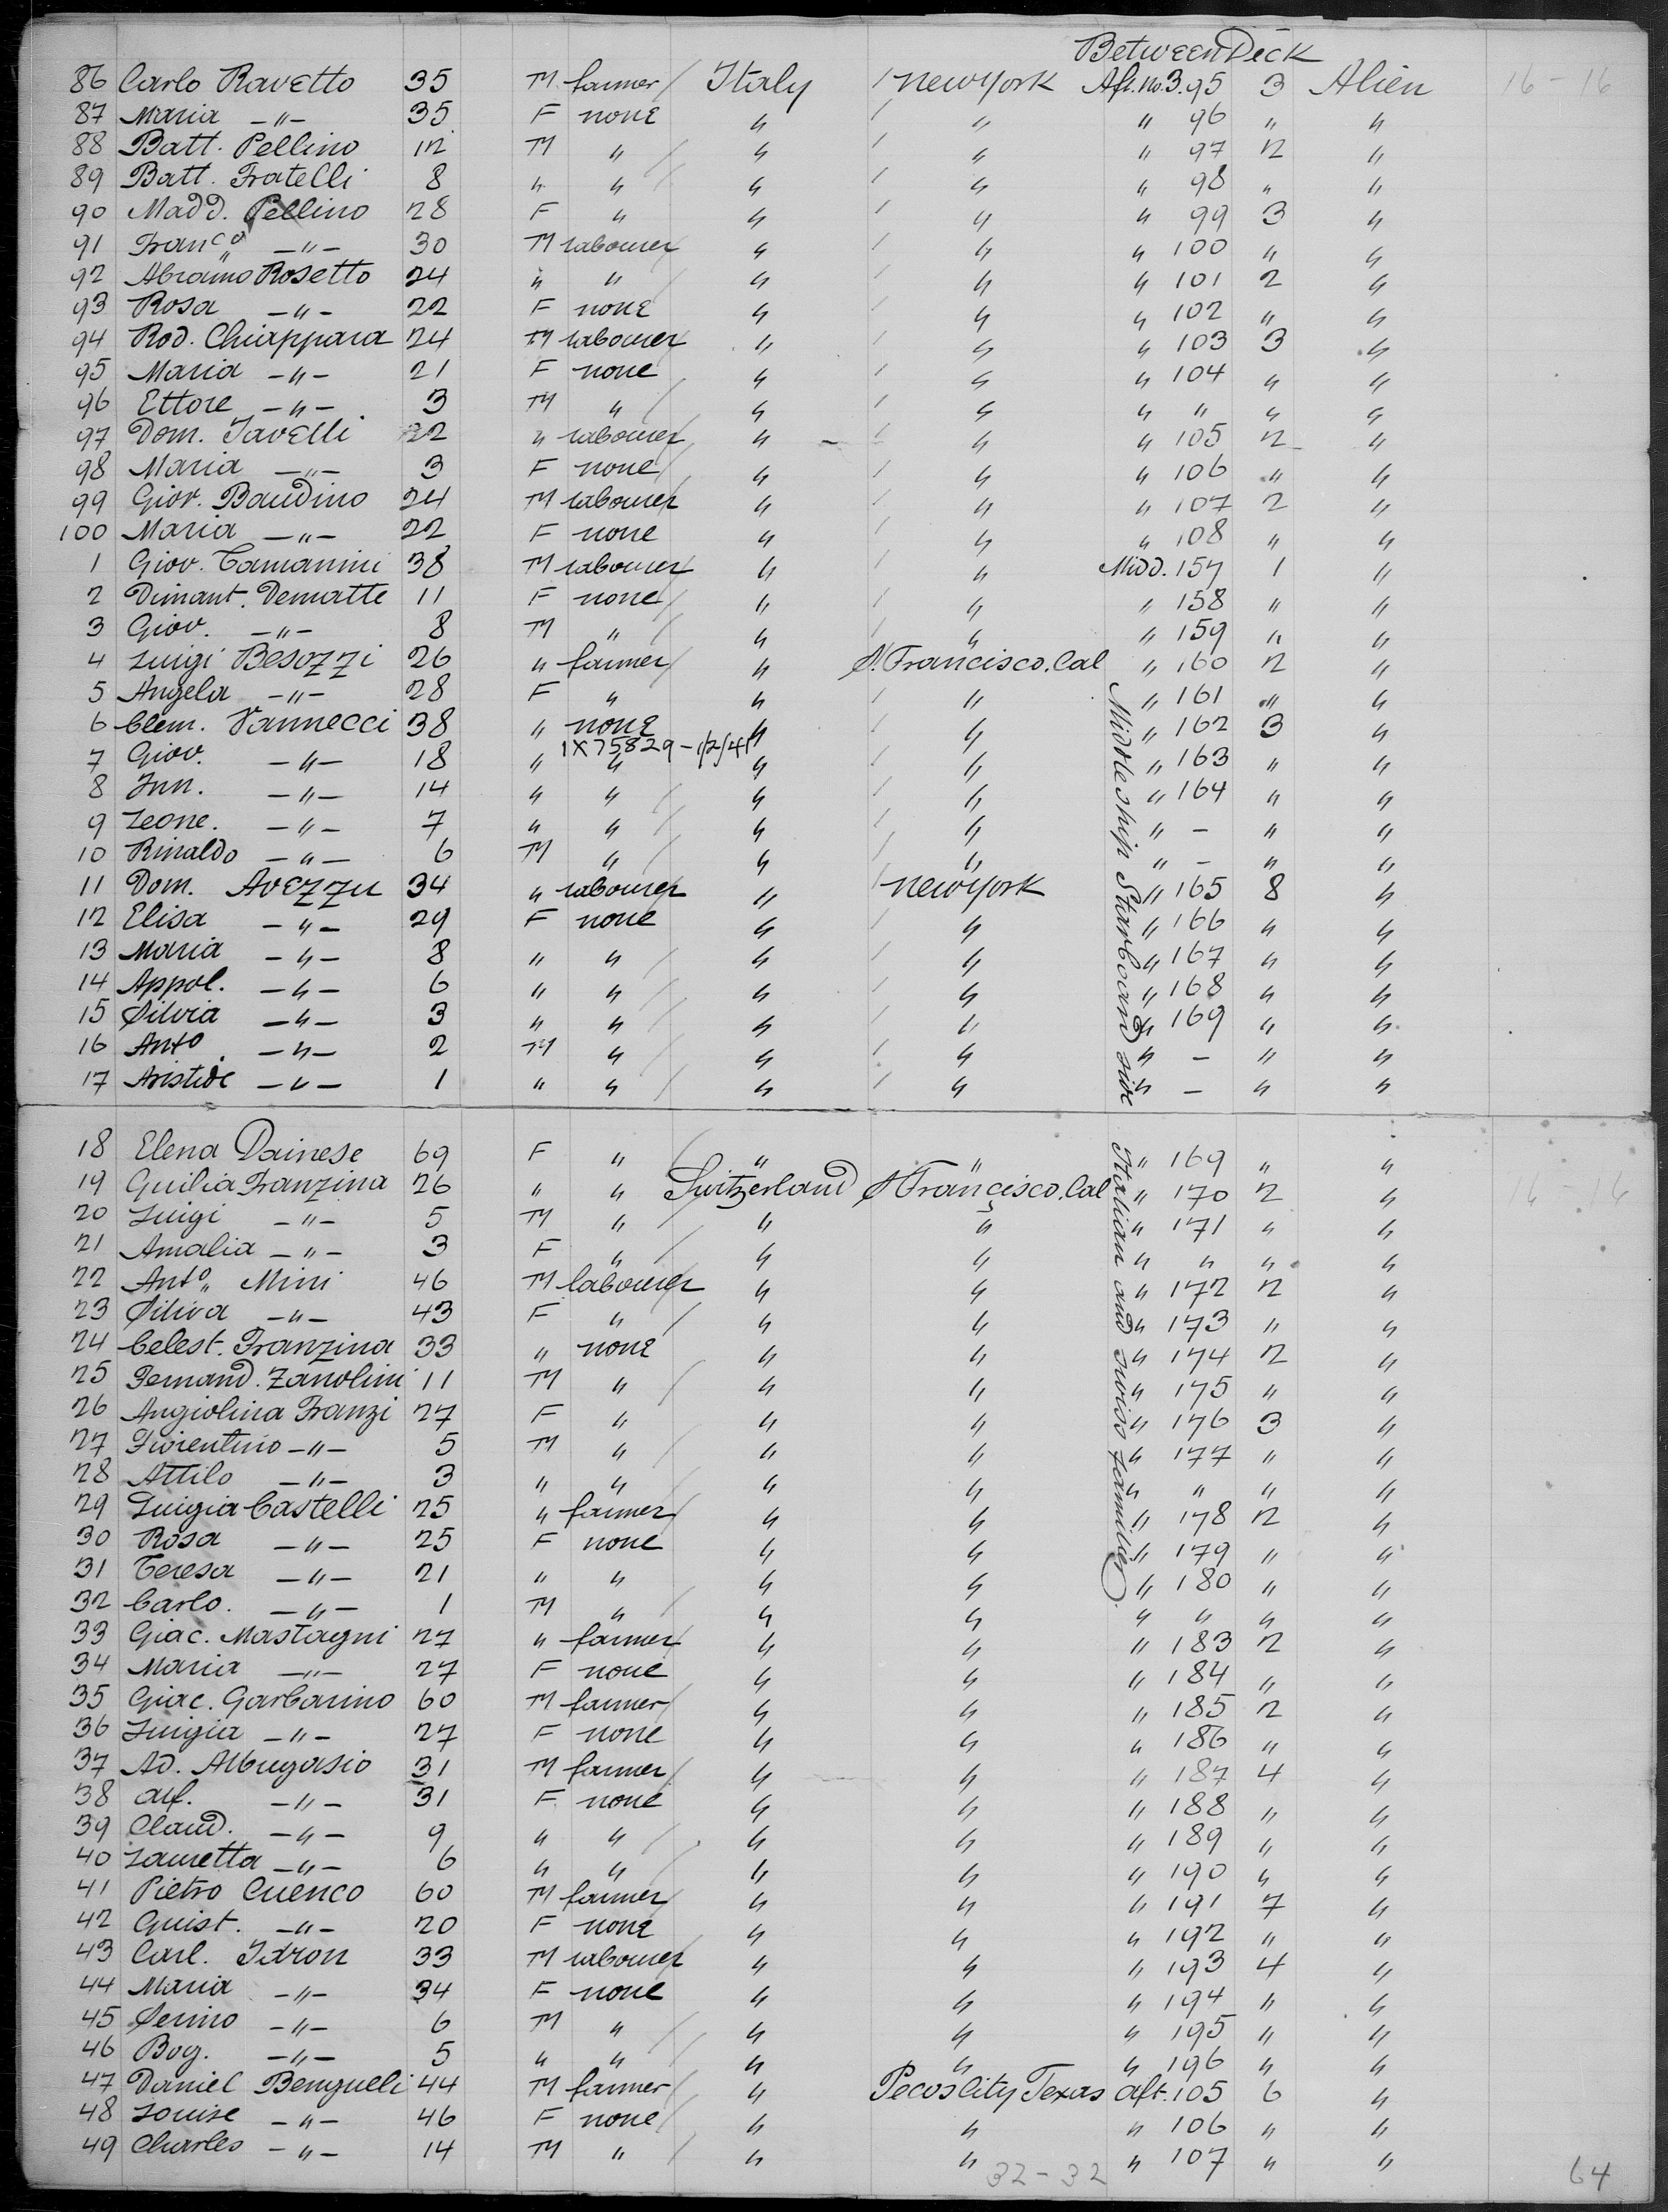 Between Deck
86 Carlo Ravetto 35 M farmer / Italy / New York Aft. No. 3. 95 3 Alien 16 - 16
87 Maria -"- 35 F none " / " " 96 " "
88 Batt. Pellino 12 M " / " / " " 97 2 "
89 Batt. Fratelli 8 " " / " / " " 98 " "
90 Madd. Pellino 28 F " " / " " 99 3 "
91 Franco -"- 30 M labourer " / " " 100 " "
92 Abramo Rosetto 24 " " / " / " " 101 2 "
93 Rosa -"- 22 F none " / " " 102 " "
94 Rod. Chiappara 24 M labourer " / " " 103 3 "
95 Maria -"- 21 F none " / " " 104 " "
96 Ettore -"- 3 M " / " / " " " " "
97 Dom. Javelli 22 " labourer " / " " 105 2 "
98 Maria -"- 3 F none / " / " " 106 " "
99 Giov. Baudino 24 M labourer " / " " 107 2 "
100 Maria -"- 22 F none " / " " 108 " "
1 Giov. Tamanini 38 M labourer " / " Midd. 157 1 "
2 Dimant. Dematte 11 F none / " / " " 158 " "
3 Giov. -"- 8 M " / " / " " 159 " "
4 Luigi Besozzi 26 " farmer / " S. Francisco. Cal " 160 2 "
5 Angela -"- 28 F " " / " " 161 " "
6 Clem. Vannecci 38 " none " / " " 162 3 "
1X75829 - 1/2/41
7 Giov. -"- 18 " " " / " " 163 " "
8 Inn. -"- 14 " " / " / " " 164 " "
9 Leone. -"- 7 " " / " / " " - " "
10 Rinaldo -"- 6 M " / " / " " - " "
11 Dom. Avezzu 34 " labourer " / New York " 165 8 "
12 Elisa -"- 29 F none " / " " 166 " "
13 Maria -"- 8 " " / " / " " 167 " "
14 Appol. -"- 6 " " / " / " " 168 " "
15 Silvia -"- 3 " " / " / " " 169 " "
16 Anto. -"- 2 M " / " / " " - " "
17 Aristide -"- 1 " " / " / " " - " "
Middleship Starboard side
18 Elena Dainese 69 F " / " " " 169 " "
19 Guilia Franzina 26 " " Switzerland S Francisco. Cal " 170 2 " 16 - 16
20 Luigi -"- 5 M " / " " " 171 " "
21 Amalia -"- 3 F " / " " " " " "
22 Anto. Mini 46 M labourer " " " 172 2 "
23 Silva -"- 43 F " / " " " 173 " "
24 Celest. Franzina 33 " none " " " 174 2 "
25 Fernand. Zanolini 11 M " / " " " 175 " "
26 Angiolina Franzi 27 F " " " " 176 3 "
27 Fiorentino -"- 5 M " / " " " 177 " "
28 Attilo -"- 3 " " / " " " " " "
29 Luigia Castelli 25 " farmer / " " " 178 2 "
30 Rosa -"- 25 F none " " " 179 " "
31 Teresa -"- 21 " " " " " 180 " "
Italian and swiss families.
32 Carlo. -"- 1 M " / " " " " " "
33 Giac. Mastagni 27 " farmer / " " " 183 2 "
34 Maria -"- 27 F none " " " 184 " "
35 Giac. Garbarino 60 M farmer / " " " 185 2 "
36 Luigia -"- 27 F none " " " 186 " "
37 Ad. Albugasio 31 M farmer / " " " 187 4 "
38 Alf. -"- 31 F none " " " 188 " "
39 Claud. -"- 9 " " / " " " 189 " "
40 Lauretta -"- 6 " " / " " " 190 " "
41 Pietro Cuenco 60 M farmer / " " " 191 7 "
42 Guist. -"- 20 F none " " " 192 " "
43 Carl. Idron 33 M labourer " " " 193 4 "
44 Maria -"- 34 F none " " " 194 " "
45 Serino -"- 6 M " / " " " 195 " "
46 Bog. -"- 5 " " / " " " 196 " "
47 Daniel Bengueli 44 M farmer / " Pecos City Texas aft. 105 6 "
48 Louise -"- 46 F none / " " " 106 " "
49 Charles -"- 14 M " / " " " 107 " "
32 - 32
64